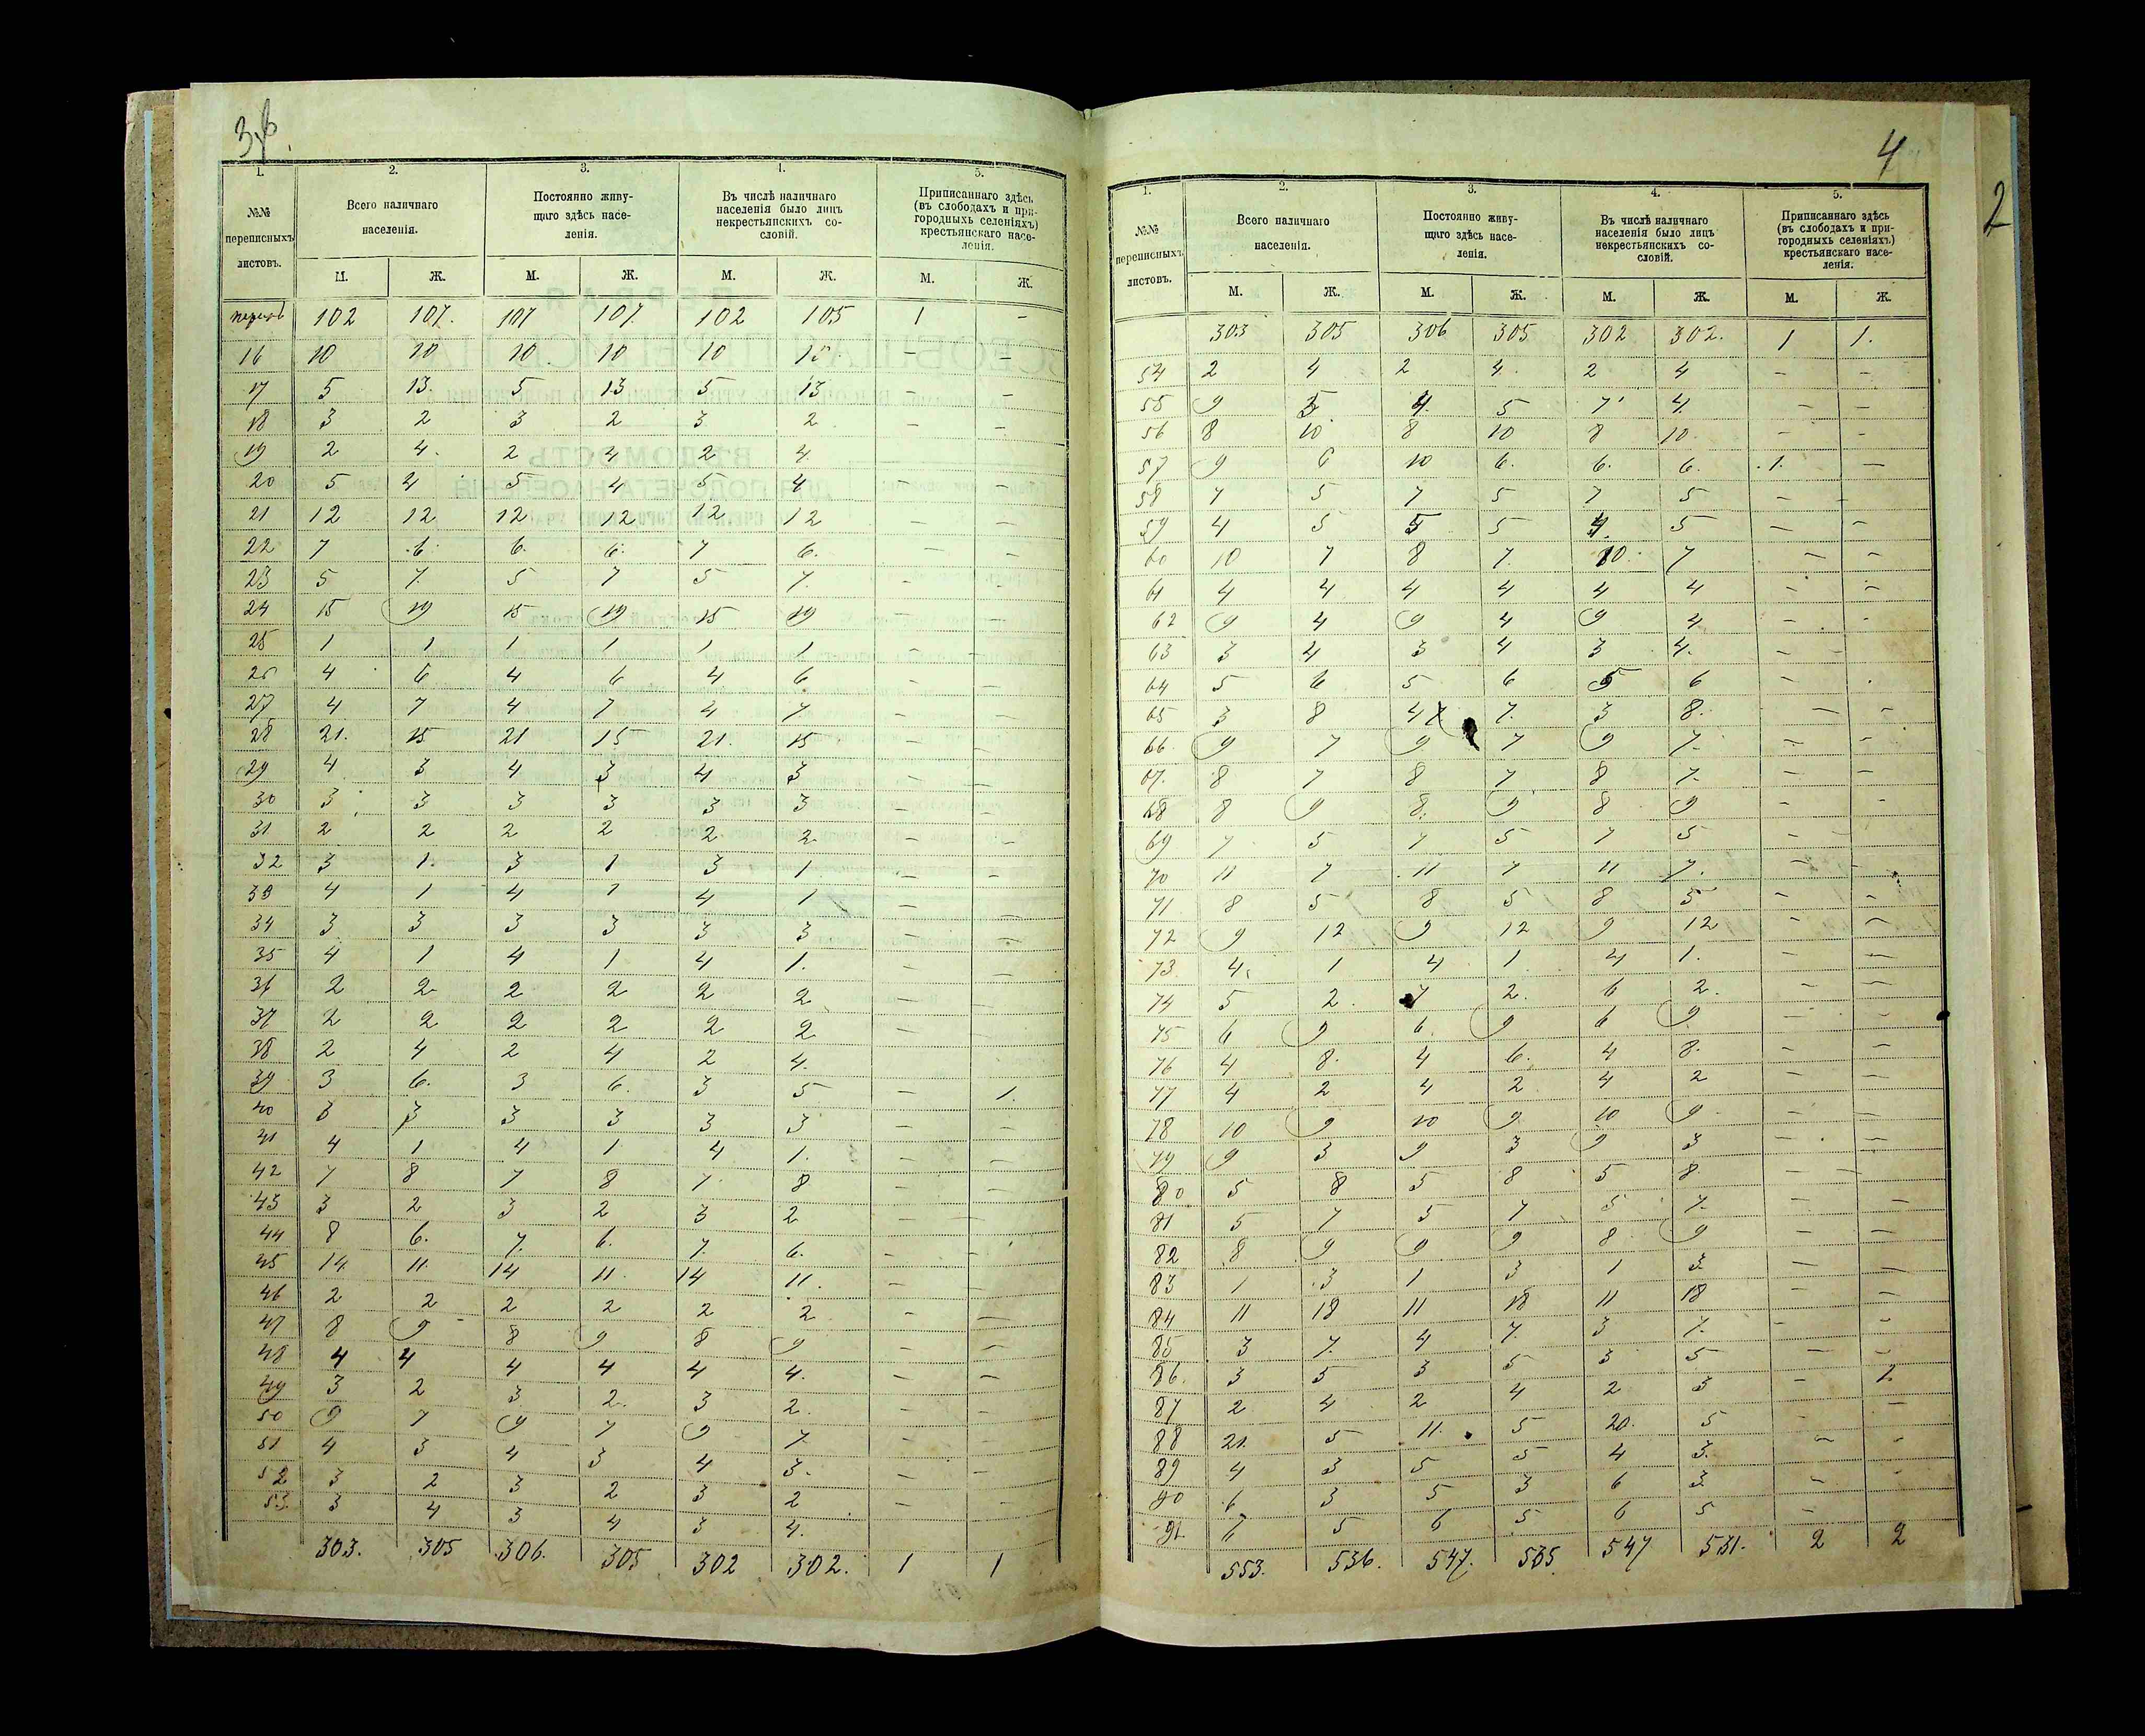 4
2
1. 2. 3. 4. 5.
№№ переписныхъ листовъ.
Всего наличнаго населенія.
Постоянно живущаго здѣсь населенія.
Въ числѣ наличнаго населенія было лицъ некрестьянскихъ сословій.
Приписаннаго здѣсь (въ слободахъ и пригородныхъ селеніяхъ) крестьянскаго населенія.
М. Ж. М. Ж. М. Ж. М. Ж.
102 107. 107 107. 102 105 1 –
16 10 10 10 10 10 10. – –
17 5 13. 5 13 5 13 – –
18 3 2 3 2 3 2 – –
19 2 4. 2 4 2 4. – –
20 5 4 5 4 5 4 – –
21 12 12 12 12 12 12 – –
22 7 6 6. 6. 7 6. – –
23 5 7. 5 7 5 7. – –
24 15 19 15 19 15 19 – –
25 1 1 1 1 1 1 – –
26 4 6 4 6 4 6 – –
27 4 7 4 7 4 7 – –
28 21. 15 21 15 21. 15 – –
29 4 3 4 3 4 3 – –
30 3 3 3 3 3 3 – –
31 2 2 2 2 2 2 – –
32 3 1. 3 1 3 1 – –
33 4 1 4 1 4 1 – –
34 3 3 3 3 3 3 – –
35 4 1 4 1 4 1. – –
36 2 2 2 2 2 2 – –
37 2 2 2 2 2 2 – –
38 2 4 2 4 2 4. – –
39 3 6. 3 6. 3 5 – 1.
40 3 3 3 3 3 3 – –
41 4 1 4 1 4 1. – –
42 7 8 7 8 7 8 – –
43 3 2 3 2 3 2 – –
44 8 6. 7. 6. 7. 6. – –
45 14. 11. 14 11. 14 11. – –
46 2 2 2 2 2 2 – –
47 8 9 8 9 8 9 – –
48 4 4 4 4 4 4. – –
49 3 2 3 2. 3 2. – –
50 9 7 9 7 9 7. – –
51 4 3 4 3 4 3. – –
52 3 2 3 2 3 2 – –
53 3 4 3 4 3 4.
303. 305 306. 305 302 302. 1 1
1. 2. 3. 4. 5.
№№ переписныхъ листовъ.
Всего наличнаго населенія.
Постоянно живущаго здѣсь населенія.
Въ числѣ наличнаго населенія было лицъ некрестьянскихъ сословій.
Приписаннаго здѣсь (въ слободахъ и пригородныхъ селеніяхъ) крестьянскаго населенія.
М. Ж. М. Ж. М. Ж. М. Ж.
303 305 306 305 302 302. 1 1.
54 2 4 2 4. 2 4 – –
55 9 5 4. 5 7 4. – –
56 8 10 8 10 8 10. – –
57 9 6 10 6. 6. 6. 1. –
58 7 5 7 5 7 5 – –
59 4 5 5 5 4. 5 – –
60 10 7 8 7. 10. 7 – –
61 4 4 4 4 4 4 – –
62 9 4 9 4 9 4 – –
63 3 4 3 4 3 4. – –
64 5 6 5 6 5 6 –
65 3 8 4 7. 3 8. – –
66 9 7 9 7 9 7. – –
67. 8 7 8 7 8 7. – –
68 8 9 8. 9 8 9 – –
69 7. 5 7 5 7 5 – –
70 11 7 11 7 11 7. – –
71 8 5 8 5 8 5 – –
72 9 12 9 12 9 12 – –
73 4. 1 4 1 4 1. – –
74 5 2. 7 2. 6 2. – –
75 6 9 6. 9 6 9 – –
76 4 8. 4 6. 4 8. – –
77 4 2 4 2 4 2 – –
78 10 9 10 9 10 9. – –
79 9 3 9 3 9 3 – –
80 5 8 5 8 5 8 – –
81 5 7 5 7 5 7. – –
82 8 9 9 9 8 9 – –
83 1 3 1 3 1 3 – –
84 11 18 11 18 11 18 – –
85 3 7. 4 7. 3 7. – –
86. 3 5 3 5 3 5 – –
87 2 4 2 4 2 3 – 1.
88 21. 5 11. 5 20. 5 – –
89 4 3 5 5 4 3. – –
90 6 3 5 3 6 3. – –
91. 7 5 6 5 6 5 –
553. 536. 547. 535. 547 531. 2 2